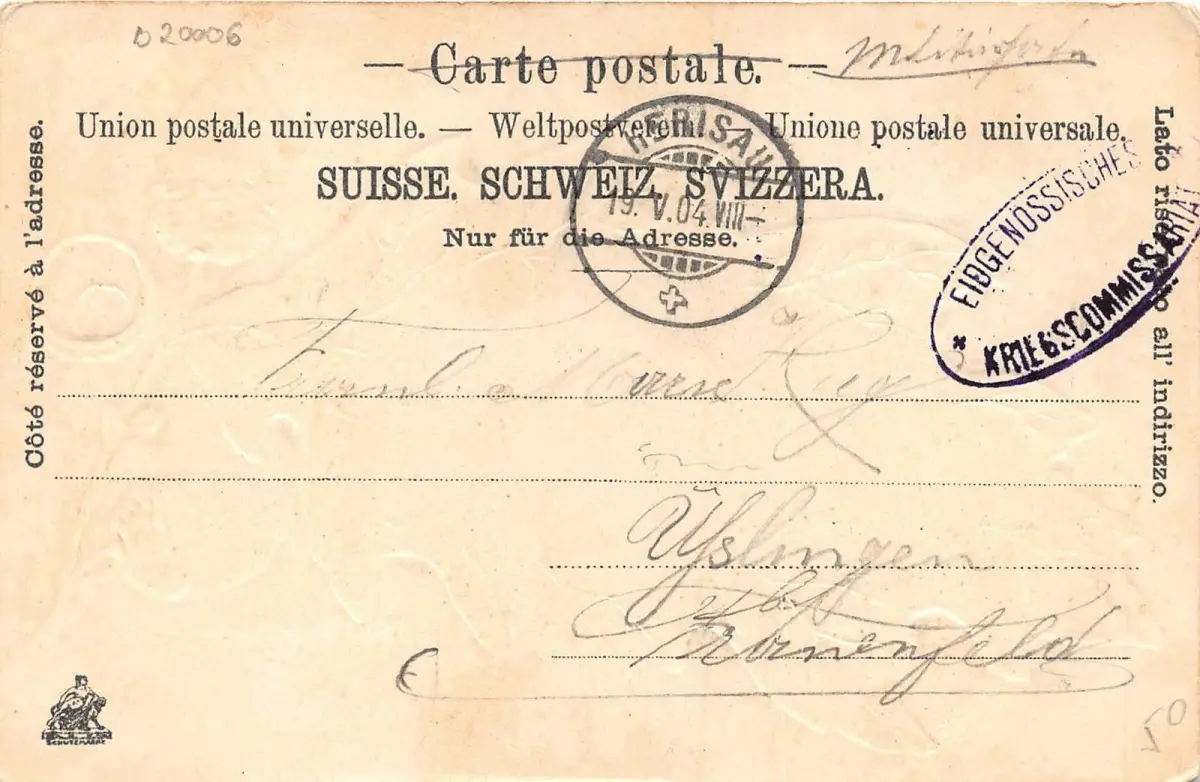 D 20006
— Carte postale. —
Union postale universelle. — Weltpostverein — Unione postale universale.
SUISSE. SCHWEIZ. SVIZZERA.
Nur für die Adresse.
Côté réservé à l'adresse.
Lato riservato all' indirizzo.
HERISAU
19. V. 04. VIII –
EIDGENÖSSISCHES
KRIEGSCOMMISSARIAT
in
Frauenfeld
SCHUTZMARKE
50